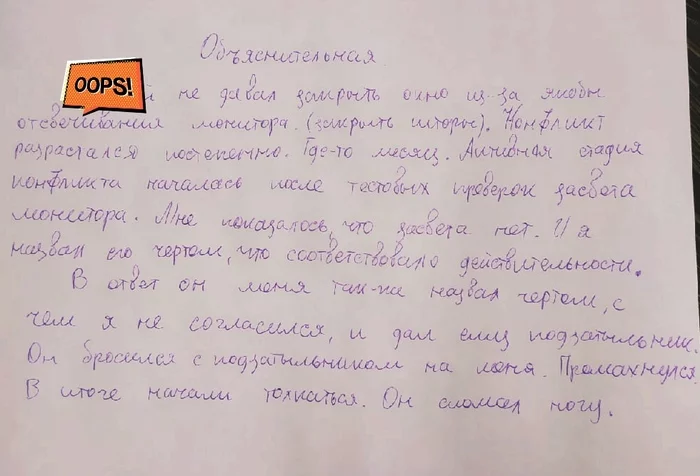 Объяснительная
OOPS!
й не давал закрыть окно из-за якобы
отсвечивания монитора. (закрыть шторы). Конфликт
разрастался постепенно. Где-то месяц. Активная стадия
конфликта началась после тестовых проверок засвета
монитора. Мне показалось, что засвета нет. И я
назвал его чертом, что соответствовало действительности.
В ответ он меня так-же назвал чертом, с
чем я не согласился, и дал ему подзатыльник.
Он бросился с подзатыльником на меня. Промахнулся
В итоге начали толкаться. Он сломал ногу.